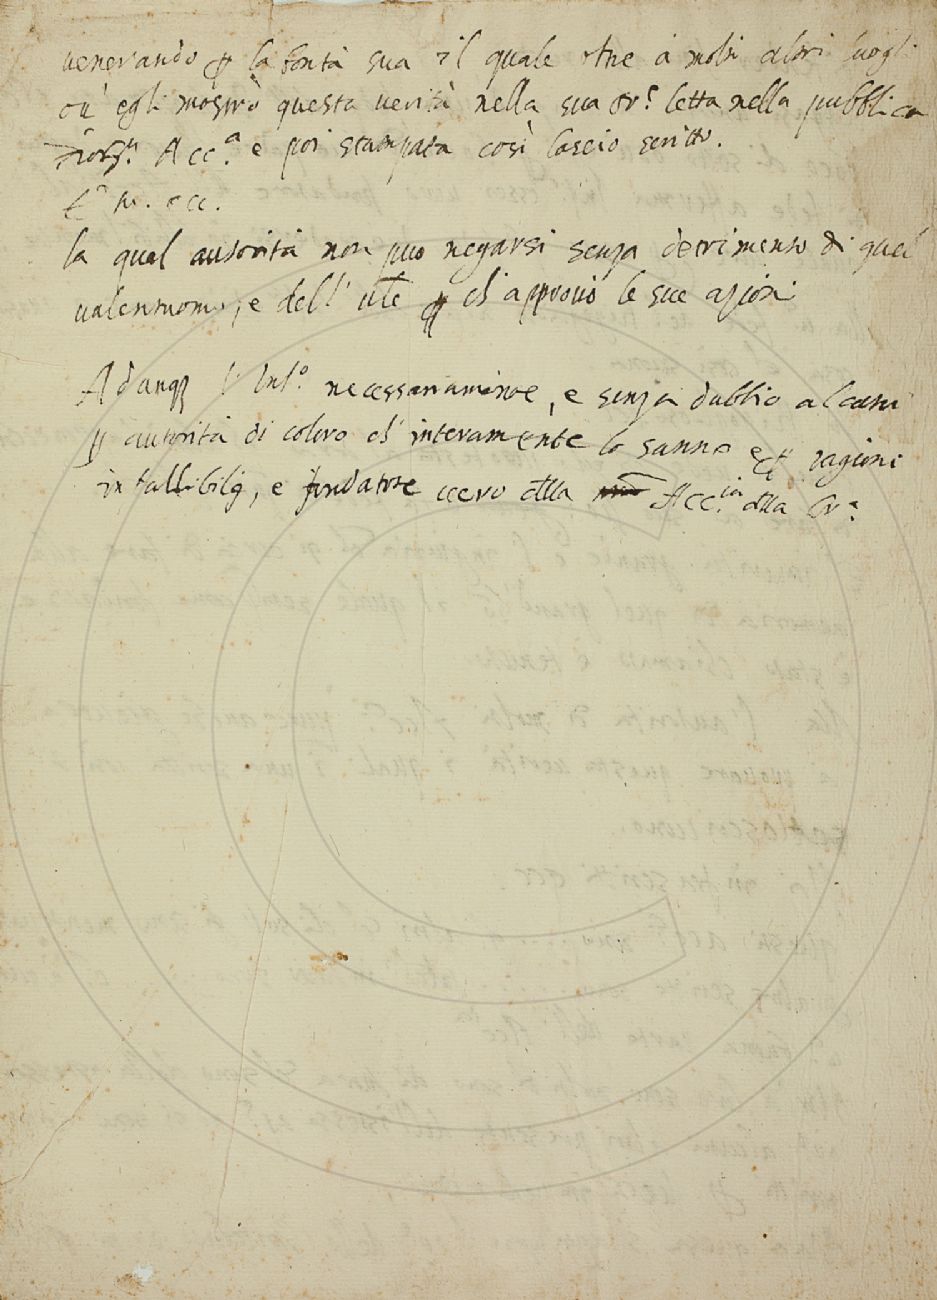 venerando ꝑ la bontà sua il quale oltre à molti altri luogli
ov' egli mostrò questa verità nella sua or.ᵉ letta nella pubblica
Acc.ᵃ e poi stampata così lascio scritto.
ecc.
la qual autorità non può negarsi senza detrimento di quel
valentuomo, e dell' ꝑ ch' approvò le sue azioni
Adunq l' Inf.º necessariamente, e senza dubbio alcuno
ꝑ autorità di coloro ch' interamente lo sanno e ꝑ ragioni
infallibilj, e fondatore vero della Acc.ⁱᵃ della Cr.ᵃ